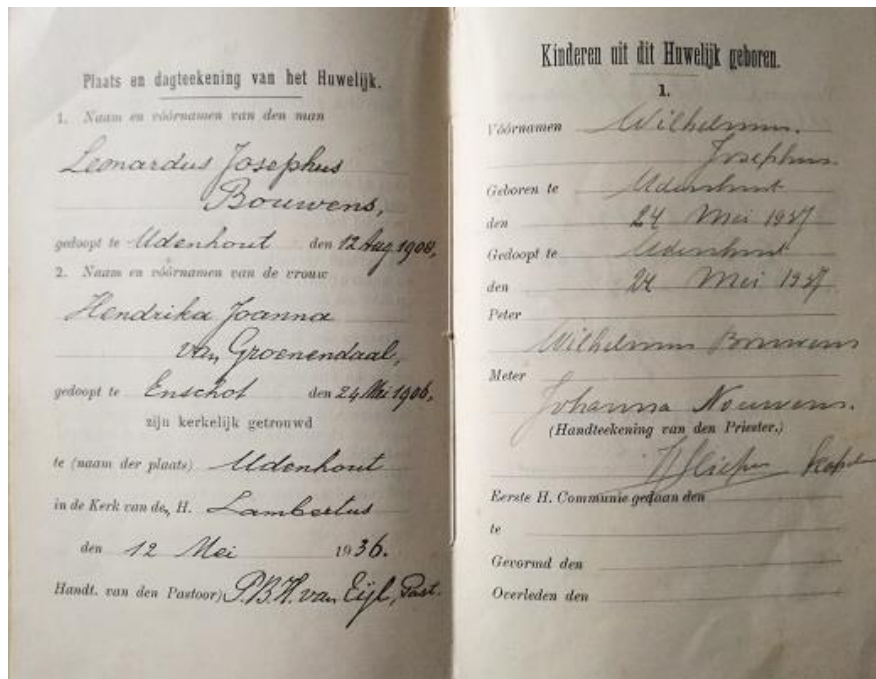 Plaats en dagteekening van het Huwelijk.
1. Naam en vóórnamen van den man
Leonardus Josephus
Bouwens,
gedoopt te Udenhout den 12 Aug. 1908,
2. Naam en vóórnamen van de vrouw
Hendrika Joanna
van Groenendaal,
gedoopt te Enschot den 24 Mei 1906,
zijn kerkelijk getrouwd
te (naam der plaats) Udenhout
in de Kerk van de, H. Lambertus
den 12 Mei 1936.
Handt. van den Pastoor) P.B.H. van Eijl, Past.
Kinderen uit dit Huwelijk geboren.
1.
Vóórnamen Wilhelmus.
Josephus.
Geboren te Udenhout
den 24 Mei 1937
Gedoopt te Udenhout
den 24 Mei 1937
Peter
Wilhelmus Bouwens
Meter
Johanna Nouwens.
(Handteekening van den Priester.)
Eerste H. Communie gedaan den
te
Gevormd den
Overleden den